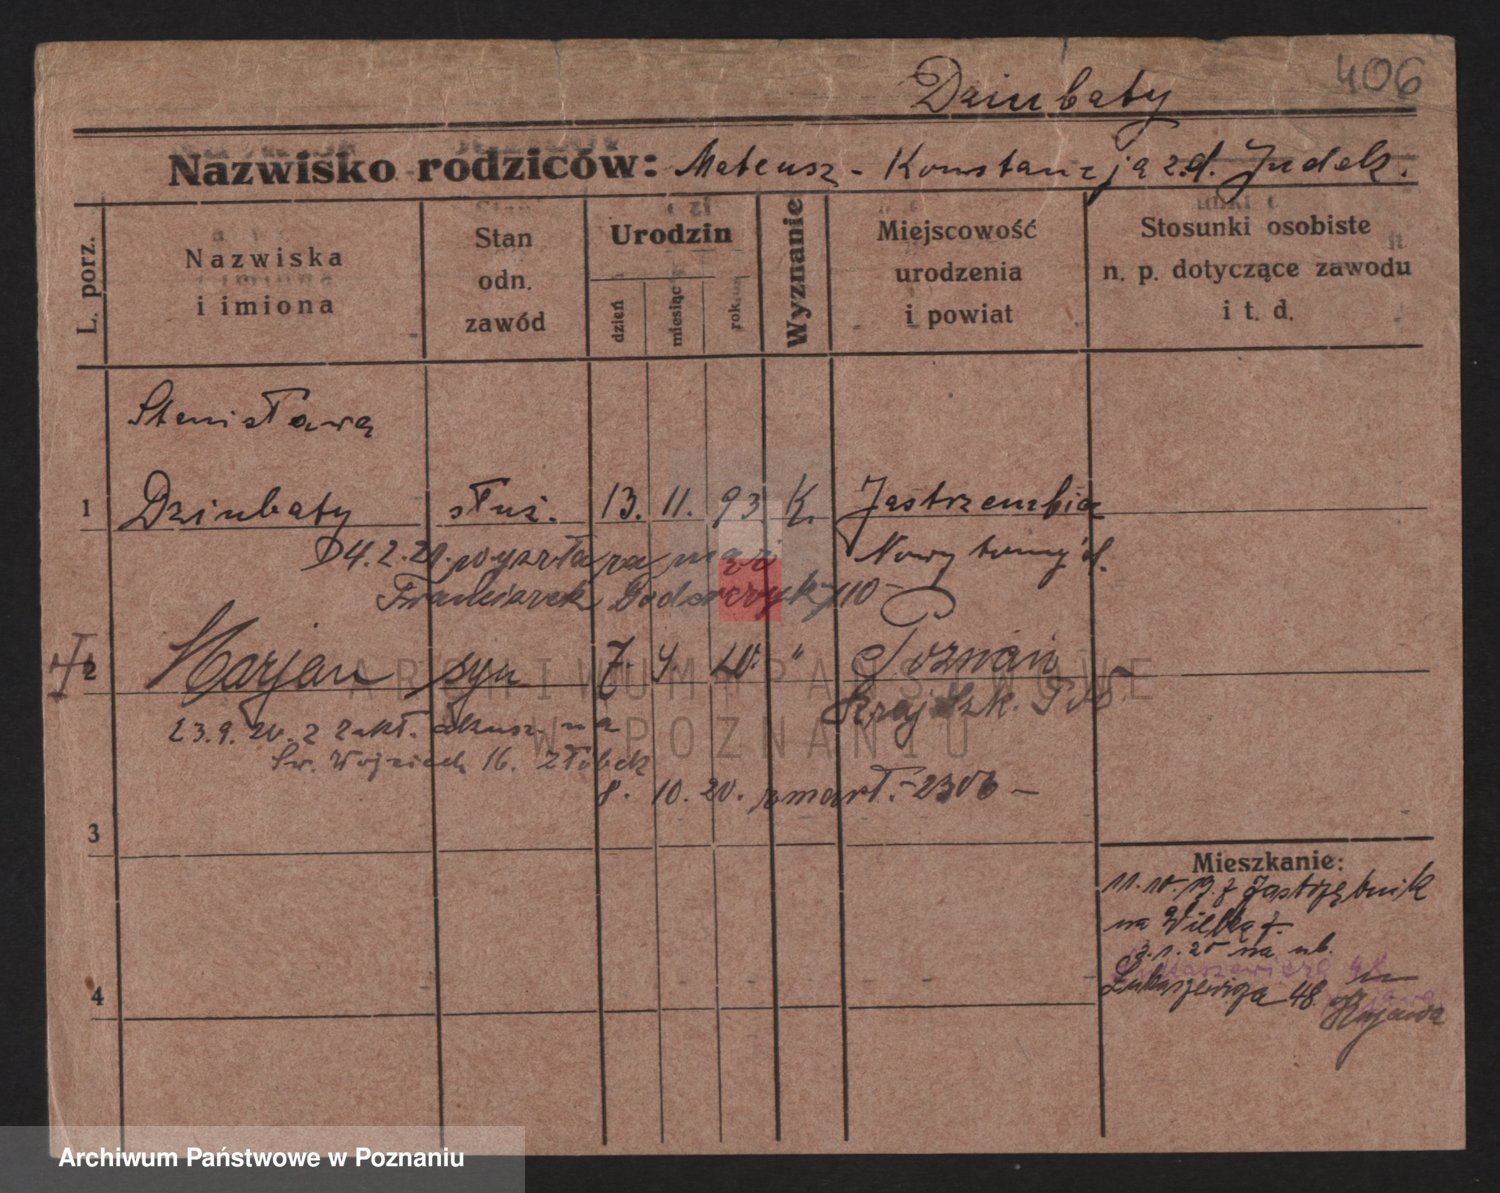 406
Dziubaty
Nazwisko rodziców: Mateusz - Konstancja z.d. Judek.
L. porz.
Nazwiska
i imiona
Stan
odn.
zawód
Urodzin
dzień
miesiąc
rok
Wyznanie
Miejscowość
urodzenia
i powiat
Stosunki osobiste
n. p. dotyczące zawodu
i t. d.
Stanisława
1 Dziubaty służ. 13. 11. 93 K. Jastrzembia
4.2.21. wyszła za mąż Nowy tomyśl.
Franciszek 110 -
2 Marjan syn 7. 4. 20. " Poznań
23.9.20. z zakł. akusz. na
Św. Wojciech 16. Żłóbek
8. 10. 20. zmarł. - 2306 -
3
4
Mieszkanie:
11.10.19. z Jastrzębnik
na Wielką 7.
3.1.20 na ul.
Łukaszewicza 48
ARCHIWUM PAŃSTWOWE
W POZNANIU
Archiwum Państwowe w Poznaniu